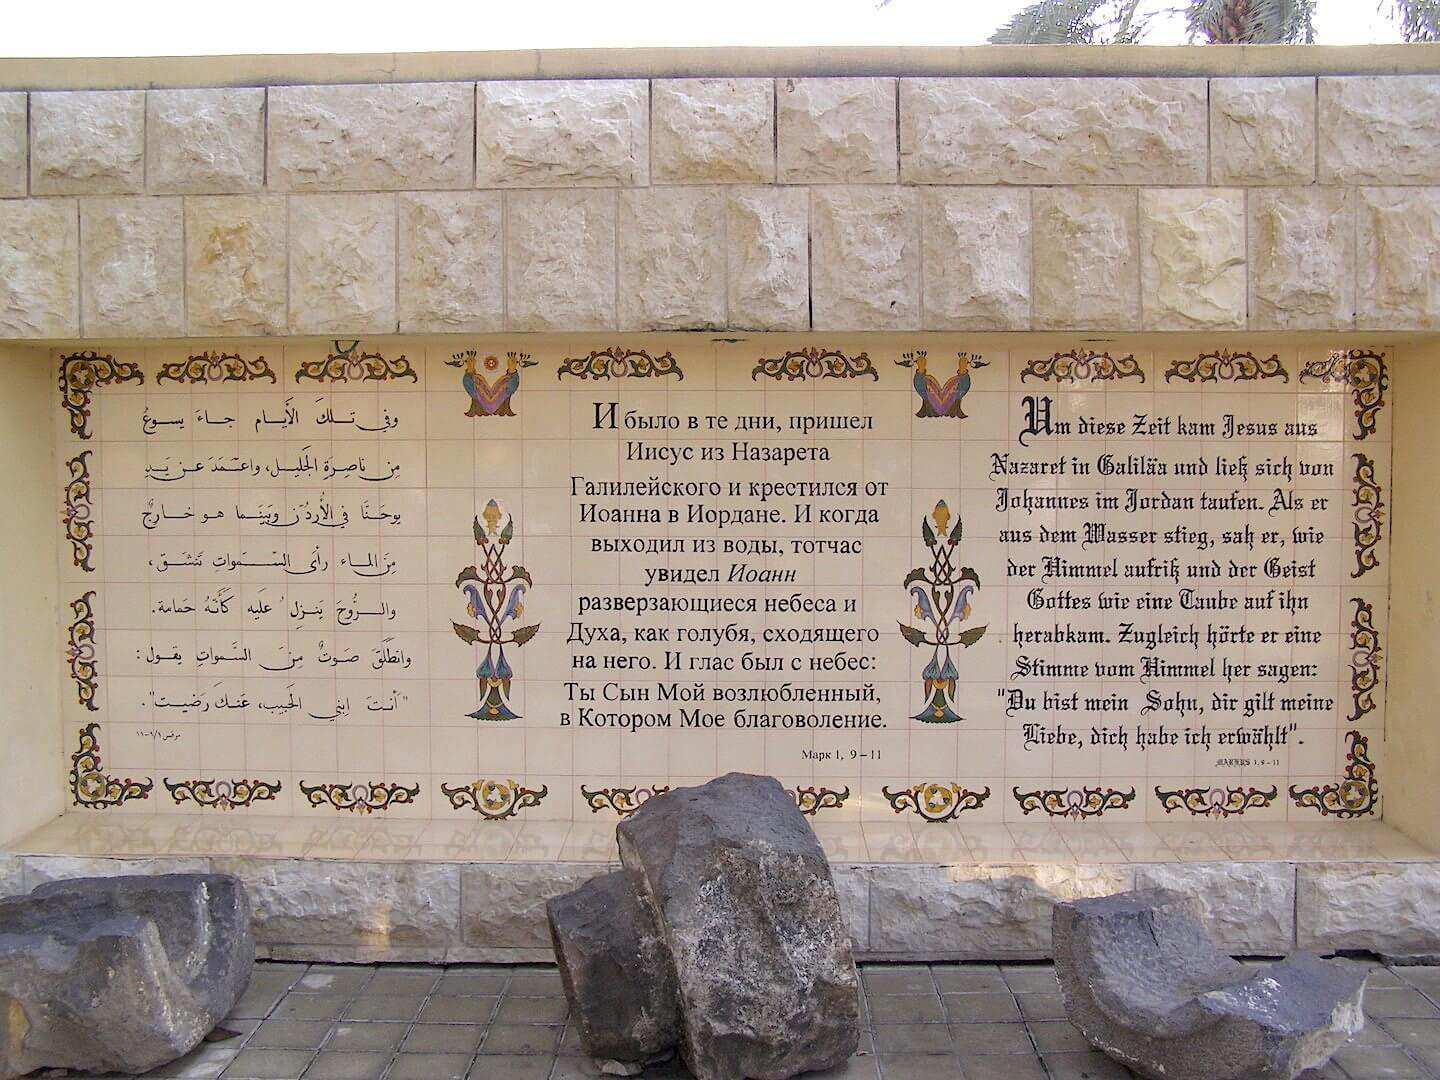 وفي تلكَ الأَيام جاءَ يسوعُ
مِن ناصِرَةِ الجَليل، واعتَمَدَ عن يَدِ
يوحَنَّا في الأُردُن وبَيَنَما هو خارجٌ
مِنَ الماء رأى السَّمَواتِ تَنشَق،
والرُّوحَ يَنزِلُ عليَه كَأَنَّهُ حَمامة.
وانطَلَقَ صَوتٌ مِنَ السَّمواتِ يقول:
"أنتَ ابني الحَبيب، عَنكَ رَضيت".
مرقس ١/٩-١١
И было в те дни, пришел
Иисус из Назарета
Галилейского и крестился от
Иоанна в Иордане. И когда
выходил из воды, тотчас
увидел Иоанн
разверзающиеся небеса и
Духа, как голубя, сходящего
на него. И глас был с небес:
Ты Сын Мой возлюбленный,
в Котором Мое благоволение.
Марк 1, 9–11
Um diese Zeit kam Jesus aus
Nazaret in Galiläa und ließ sich von
Johannes im Jordan taufen. Als er
aus dem Wasser stieg, sah er, wie
der Himmel aufriß und der Geist
Gottes wie eine Taube auf ihn
herabkam. Zugleich hörte er eine
Stimme vom Himmel her sagen:
"Du bist mein Sohn, dir gilt meine
Liebe, dich habe ich erwählt".
MARKUS 1, 9–11